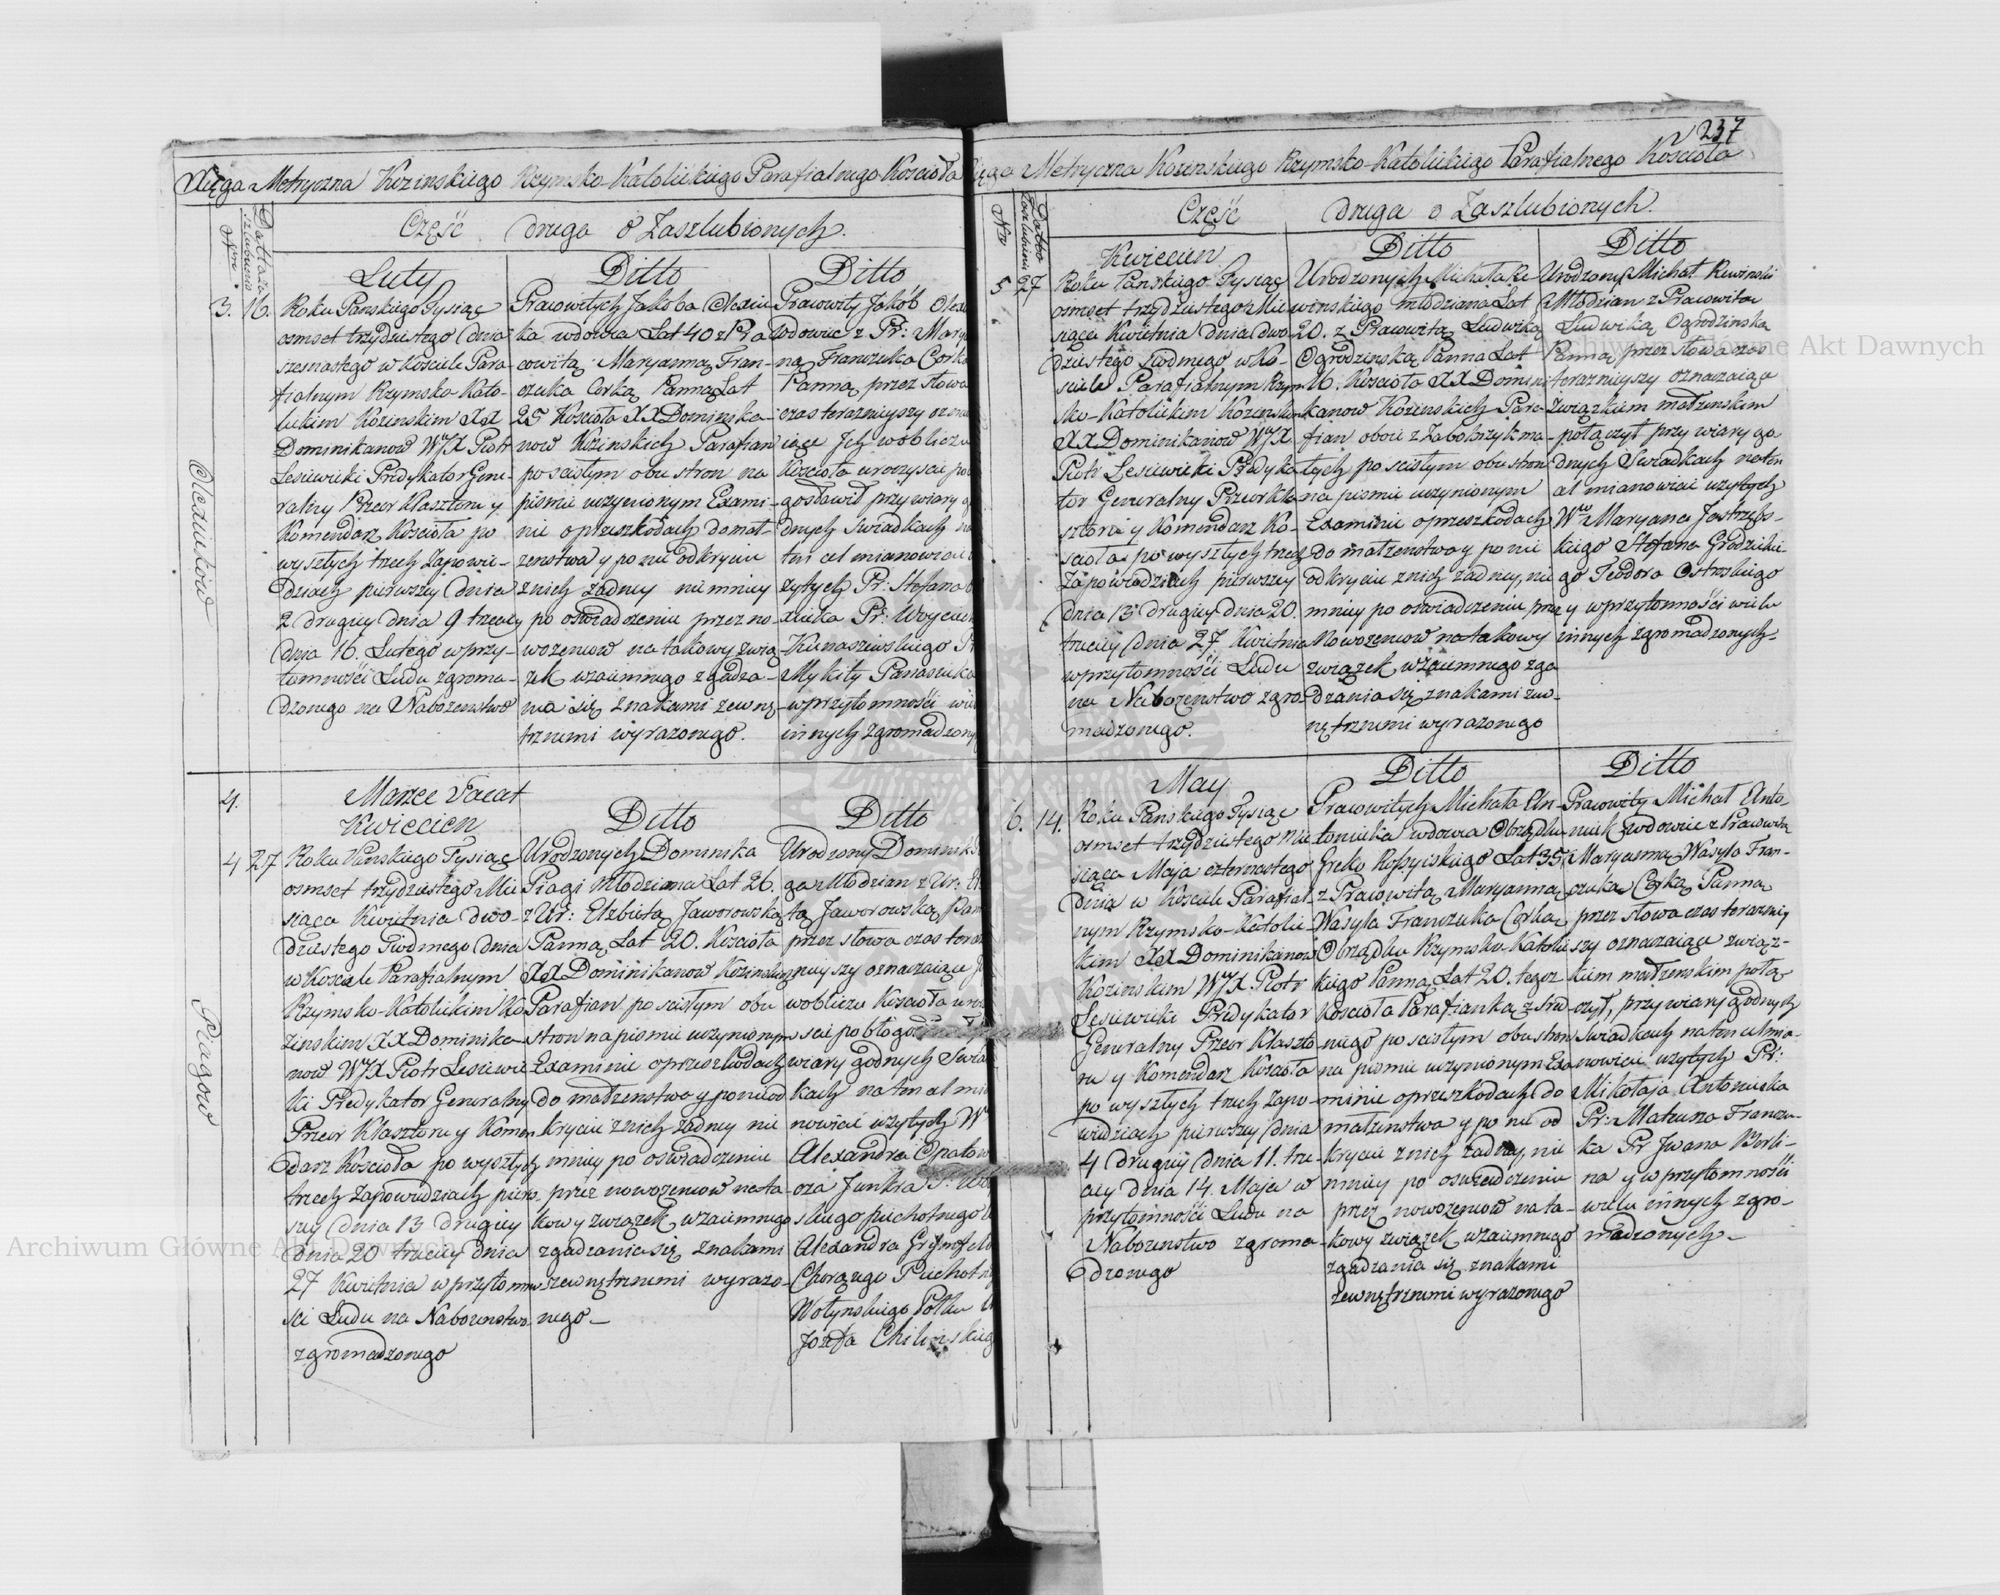 Xięga Metryczna Kozinskiego Rzymsko-Katolickiego Parafialnego Koscioła
Część druga o Zaszlubionych.
Nro
Datta zaszlubienia
Luty
3. 16. Roku Panskiego Tysiąc
osmset trzydziestego dnia
szesnastego w Kosciele Para-
fialnym Rzymsko-Kato-
lickim Kozinskim XX
Dominikanow WJX Piotr
Lesiewicki Predykator Gene-
ralny Przeor Klasztoru y
Komendarz Koscioła po
wyszłych trzech Zapowie-
dziach pierwszey dnia
2 drugiey dnia 9 trzeciey
dnia 16. Lutego w przy-
tomności Ludu zgroma-
dzonego na Nabożenstwo
Ditto
Pracowitych Jakoba Olexiu-
ka wdowca Lat 40 z Pra-
cowitą Maryanną Fran-
czuka Corką Panną Lat
25 Koscioła XX Dominika-
now Kozinskich Parafian
po scisłym obu stron na
pismie uczynionym Exami-
nie o przeszkodach do mał-
żenstwa y po nie odkryciu
z nich żadney nie mniey
po oświadczeniu przez no-
wożencow na takowy zwią-
zek wzaiemnego zgadza-
nia się znakami zewnę-
trznemi wyrażonego.
Ditto
Pracowity Jakób
wdowiec z Pr: Mary
ną Franczuka Corką
Panną, przez słowa
czas teraznieyszy ozna
iące Jch w obliczu
Koscioła uroczyscie po
gosławił przy wiary
dnych Swiadkach na
ten cel mianowicie
żytych Pr: Stefana
Pr: Woyciecha
Kunaszewskiego
Mykity Panasiuka
w przytomności wie
innych zgromadzony
Olexiukow
4.
Marzec Vacat
Kwiecien
4 27 Roku Panskiego Tysiąc
osmset trzydziestego Mie
siąca Kwietnia dwó-
dziestego siodmego dnia
w Kosciele Parafialnym
Rzymsko-Katolickim Ko
zinskim XX Dominika-
now WJX Piotr Lesiewic
ki Predykator Generalny
Przeor Klasztoru y Komen
darz Koscioła po wyszłych
trzech Zapowiedziach pierw-
szey dnia 13 drugiey
dnia 20 trzeciey dnia
27 Kwietnia w przytomno
sci Ludu na Nabożenstwo
zgromadzonego
Ditto
Urodzonych Dominika
Piagi Młodziana Lat 26.
z Ur: Elżbietą Jaworowską
Panną Lat 20. Koscioła
XX Dominikanow Kozinskich
Parafian po scisłym obu
stron na pismie uczynionym
Examinie o przeszkodach
do małżenstwa y po nieod
kryciu z nich żadney nie
mniey po oswiadczeniu
przez nowożencow na ta-
kowy związek wzaiemnego
zgadzania się znakami
zewnętrznemi wyrażo-
nego.
Ditto
Urodzony Dominik
ga Młodzian z Ur:
tą Jaworowską Pan
przez słowa czas teraz
nieyszy oznaczaiące
w obliczu Koscioła uro
scie pobłogo
wiary godnych Swia
kach na ten cel mia
nowicie użytych W
Alexandra
Junkra
skiego piechotnego
Alexandra
Chorążego Piechotn
Wołynskiego Połku
Józefa
Piagow
237
Xięga Metryczna Kozinskiego Rzymsko-Katolickiego Parafialnego Koscioła
Część druga o Zaszlubionych.
Nro
Datta zaszlubienia
Kwiecien
5 27 Roku Panskiego Tysiąc
osmset trzydziestego Mie
siąca Kwietnia dnia dwó-
dziestego siodmego w Ko-
sciele Parafialnym Rzym
sko-Katolickim Kozinskim
XX Dominikanow WJX
Piotr Lesiewicki Predyka
tor Generalny Przeor Kla
sztoru y Komendarz Ko-
scioła po wyszłych trzech
Zapowiedziach pierwszey
dnia 13 drugiey dnia 20.
trzeciey dnia 27. Kwietnia
w przytomności Ludu
na Nabożenstwo zgro-
madzonego.
Ditto
Urodzonych Michała Re
winskiego młodziana Lat
20. z Pracowitą Ludwiką
Ogrodzinską Panną Lat
16. Koscioła XX Domini
kanow Kozinskich Para-
fian oboie z
tych po scisłym obu stron
na pismie uczynionym
Examinie o przeszkodach
do małżenstwa y po nie
odkryciu z nich żadney, nie
mniey po oswiadczeniu przez
Nowożencow na takowy
związek wzaiemnego zga
dzania się znakami zew-
nętrznemi wyrażonego
Ditto
Urodzony Michał Rewinski
Młodzian z Pracowitą
Ludwiką Ogrodzinską
Panną przez słowa czas
teraznieyszy oznaczaiące
Związkiem małżenskim
połączył przy wiary go
dnych Swiadkach na ten
cel mianowicie użytych
Wgo Maryana Jastrzęb-
skiego Stefana Grodzickie
go Teodora Ostrskiego
y w przytomności wielu
innych zgromadzonych.
May
6. 14. Roku Panskiego Tysiąc
osmset trzydziestego Mie
siąca Maja czternastego
dnia w Kosciele Parafial-
nym Rzymsko-Katolic-
kim XX Dominikanow
Kozinskim WJX. Piotr
Lesiewicki Predykator
Generalny Przeor Klaszto
ru y Komendarz Koscioła
po wyszłych trzech Zapo-
wiedziach pierwszey dnia
4 drugiey dnia 11. trze-
ciey dnia 14. Maja w
przytomności Ludu na
Nabożenstwo zgroma-
dzonego
Ditto
Pracowitych Michała An-
toniuka wdowca Obrządku
Greko Rossyiskiego Lat 35.
z Pracowitą Maryanną
Wasyla Franczuka Corką
Obrządku Rzymsko-Katolic
kiego Panną Lat 20. tegoż
Koscioła Parafianką
po scisłym obu stron
na pismie uczynionym Exa
minie o przeszkodach do
małżenstwa y po nie od
kryciu z nich żadney, nie
mniey po oswiadczeniu
przez nowożencow na ta-
kowy związek wzaiemnego
zgadzania się znakami
zewnętrznemi wyrażonego
Ditto
Pracowity Michał Anto-
niuk wdowiec z Pracowitą
Maryanną Wasyla Fran-
czuka Corką Panną
przez słowa czas terazniey
szy oznaczaiące związ-
kiem małżenskim połą-
czył, przy wiary godnych
Swiadkach na ten cel mia-
nowicie użytych Pr:
Mikołaja Antoniuka
Pr: Mateusza Franczu-
ka Pr Jwana Berli-
na y w przytomności
wielu innych zgro-
madzonych
Archiwum Główne Akt Dawnych
Archiwum Główne Akt Dawnych